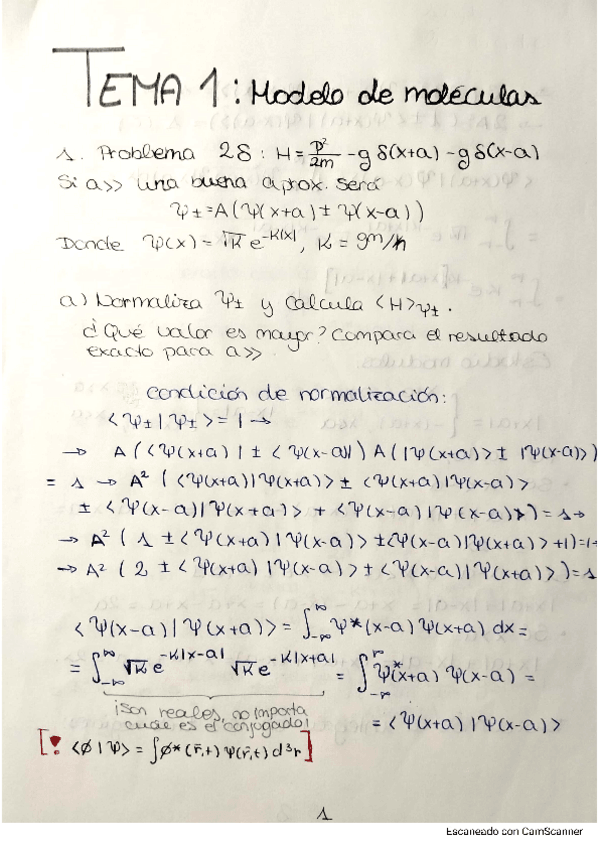 TEMA 1: Modelo de moléculas
1. Problema 2δ : H = p²/2m - g δ(x+a) - g δ(x-a)
Si a>> una buena aprox. será
Ψ± = A(Ψ(x+a) ± Ψ(x-a))
Donde Ψ(x) = √K e^(-K|x|), K = gm/ħ
a) Normaliza Ψ± y Calcula <H>Ψ±.
¿Qué valor es mayor? Compara el resultado
exacto para a>>.
condición de normalización:
<Ψ±|Ψ±> = 1 →
→ A (<Ψ(x+a)| ± <Ψ(x-a)|) A (|Ψ(x+a)> ± |Ψ(x-a)>)
= 1 → A² (<Ψ(x+a)|Ψ(x+a)> ± <Ψ(x+a)|Ψ(x-a)>
± <Ψ(x-a)|Ψ(x+a)> + <Ψ(x-a)|Ψ(x-a)>) = 1 →
→ A² (1 ± <Ψ(x+a)|Ψ(x-a)> ± <Ψ(x-a)|Ψ(x+a)> +1) = 1 →
→ A² (2 ± <Ψ(x+a)|Ψ(x-a)> ± <Ψ(x-a)|Ψ(x+a)>) = 1
<Ψ(x-a)|Ψ(x+a)> = ∫_-∞^∞ Ψ*(x-a) Ψ(x+a) dx =
= ∫_-∞^∞ √K e^(-K|x-a|) √K e^(-K|x+a|) = ∫_-r^r Ψ*(x+a) Ψ(x-a) =
¡Son reales, no importa
cual es el conjugado!
= <Ψ(x+a)|Ψ(x-a)>
[! <Ø|Ψ> = ∫Ø*(r̄,t) Ψ(r̄,t) d³r]
1
Escaneado con CamScanner